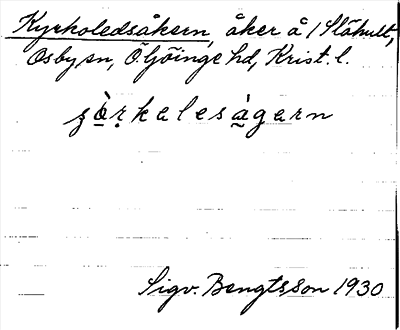 Kyrkoledsåkern, åker å 1 Slähult,
Osby sn, Ö. Göinge hd, Krist. l.
Sigv. Bengtsson 1930